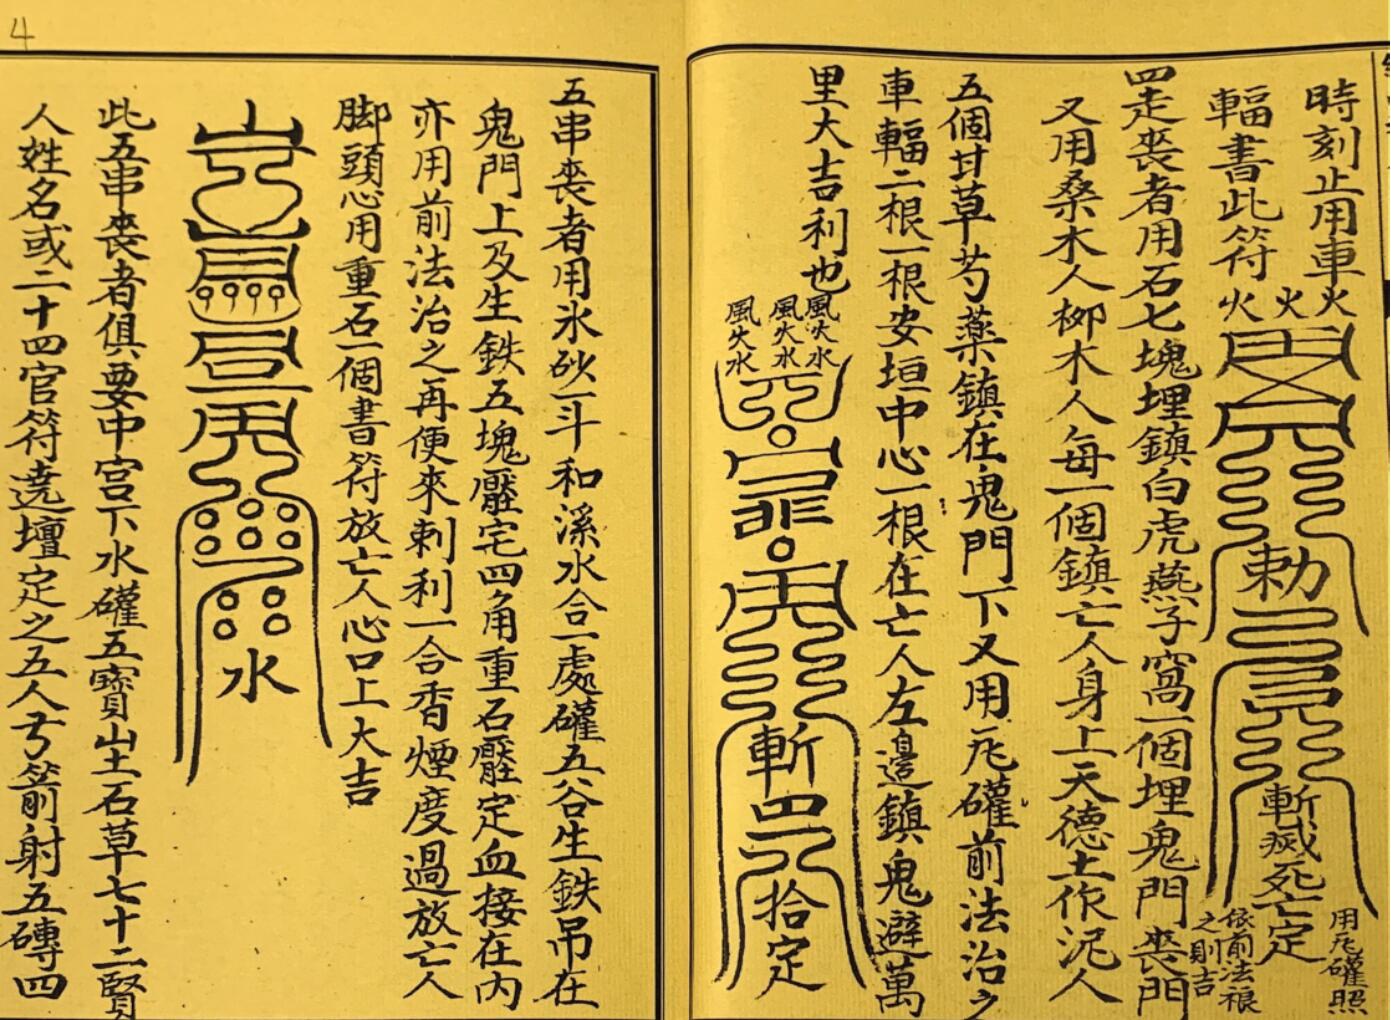 時刻止用車
輻書此符
火火火
勅
斬滅死亡定
用瓦礶照
依前法禳
之則吉
四走喪者用石七塊埋鎮白虎燕子窩一個埋鬼門喪門
又用桑木人柳木人每一個鎮亡人身上天德土作泥人
五個甘草芍藥鎮在鬼門下又用瓦礶前法治之
車輻二根一根安垣中心一根在亡人左邊鎮鬼避萬
里大吉利也
風火水
風火水
風火水
斬
拾定
五串喪者用氷砂一斗和溪水合一處礶五谷生鉄吊在
鬼門上及生鉄五塊壓宅四角重石壓定血接在内
亦用前法治之再便來刺利一合香煙度過放亡人
脚頭心用重石一個書符放亡人心口上大吉
水
此五串喪者俱要中宮下水礶五寶山土石草七十二賢
人姓名或二十四官符遶壇定之五人弓箭射五磚四
4